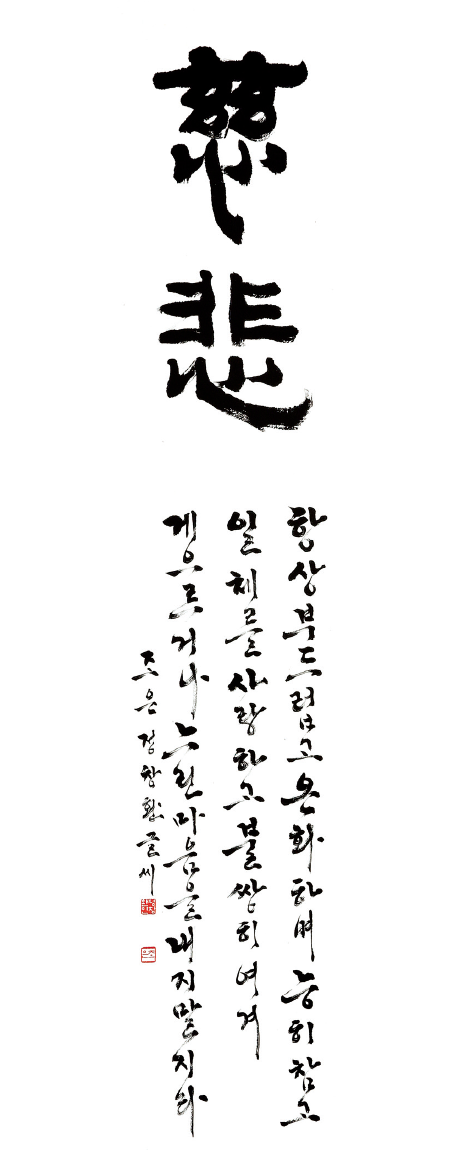 慈悲
항상부드럽고온화하며능히참고
일체를사랑하고불쌍히여겨
게으르거나느린마음을내지말지라
조은 정창환 글씨